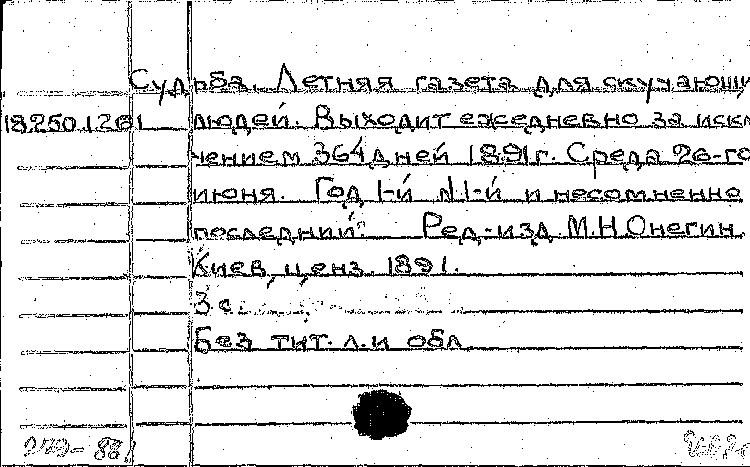 Судьба. Летняя газета для скучающи
18.250.1.261 людей. Выходит ежедневно за искл
чением 364 дней 1891 г. Среда 26-го
июня. Год 1-й №1-й и несомненно
последний. Ред.-изд. М.Н.Онегин.
Киев, ценз. 1891.
3 с.
Без тит. л. и обл.